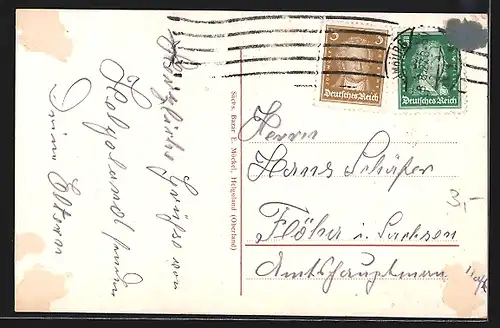 Herzliche Grüße von
Helgoland senden
Deine Eltern
Sächs. Bazar E. Möckel, Helgoland (Oberland)
3
Deutsches Reich
5
Deutsches Reich
Herrn
Hans Schäfer
Flöha i. Sachsen
Amtshauptmann
3,-